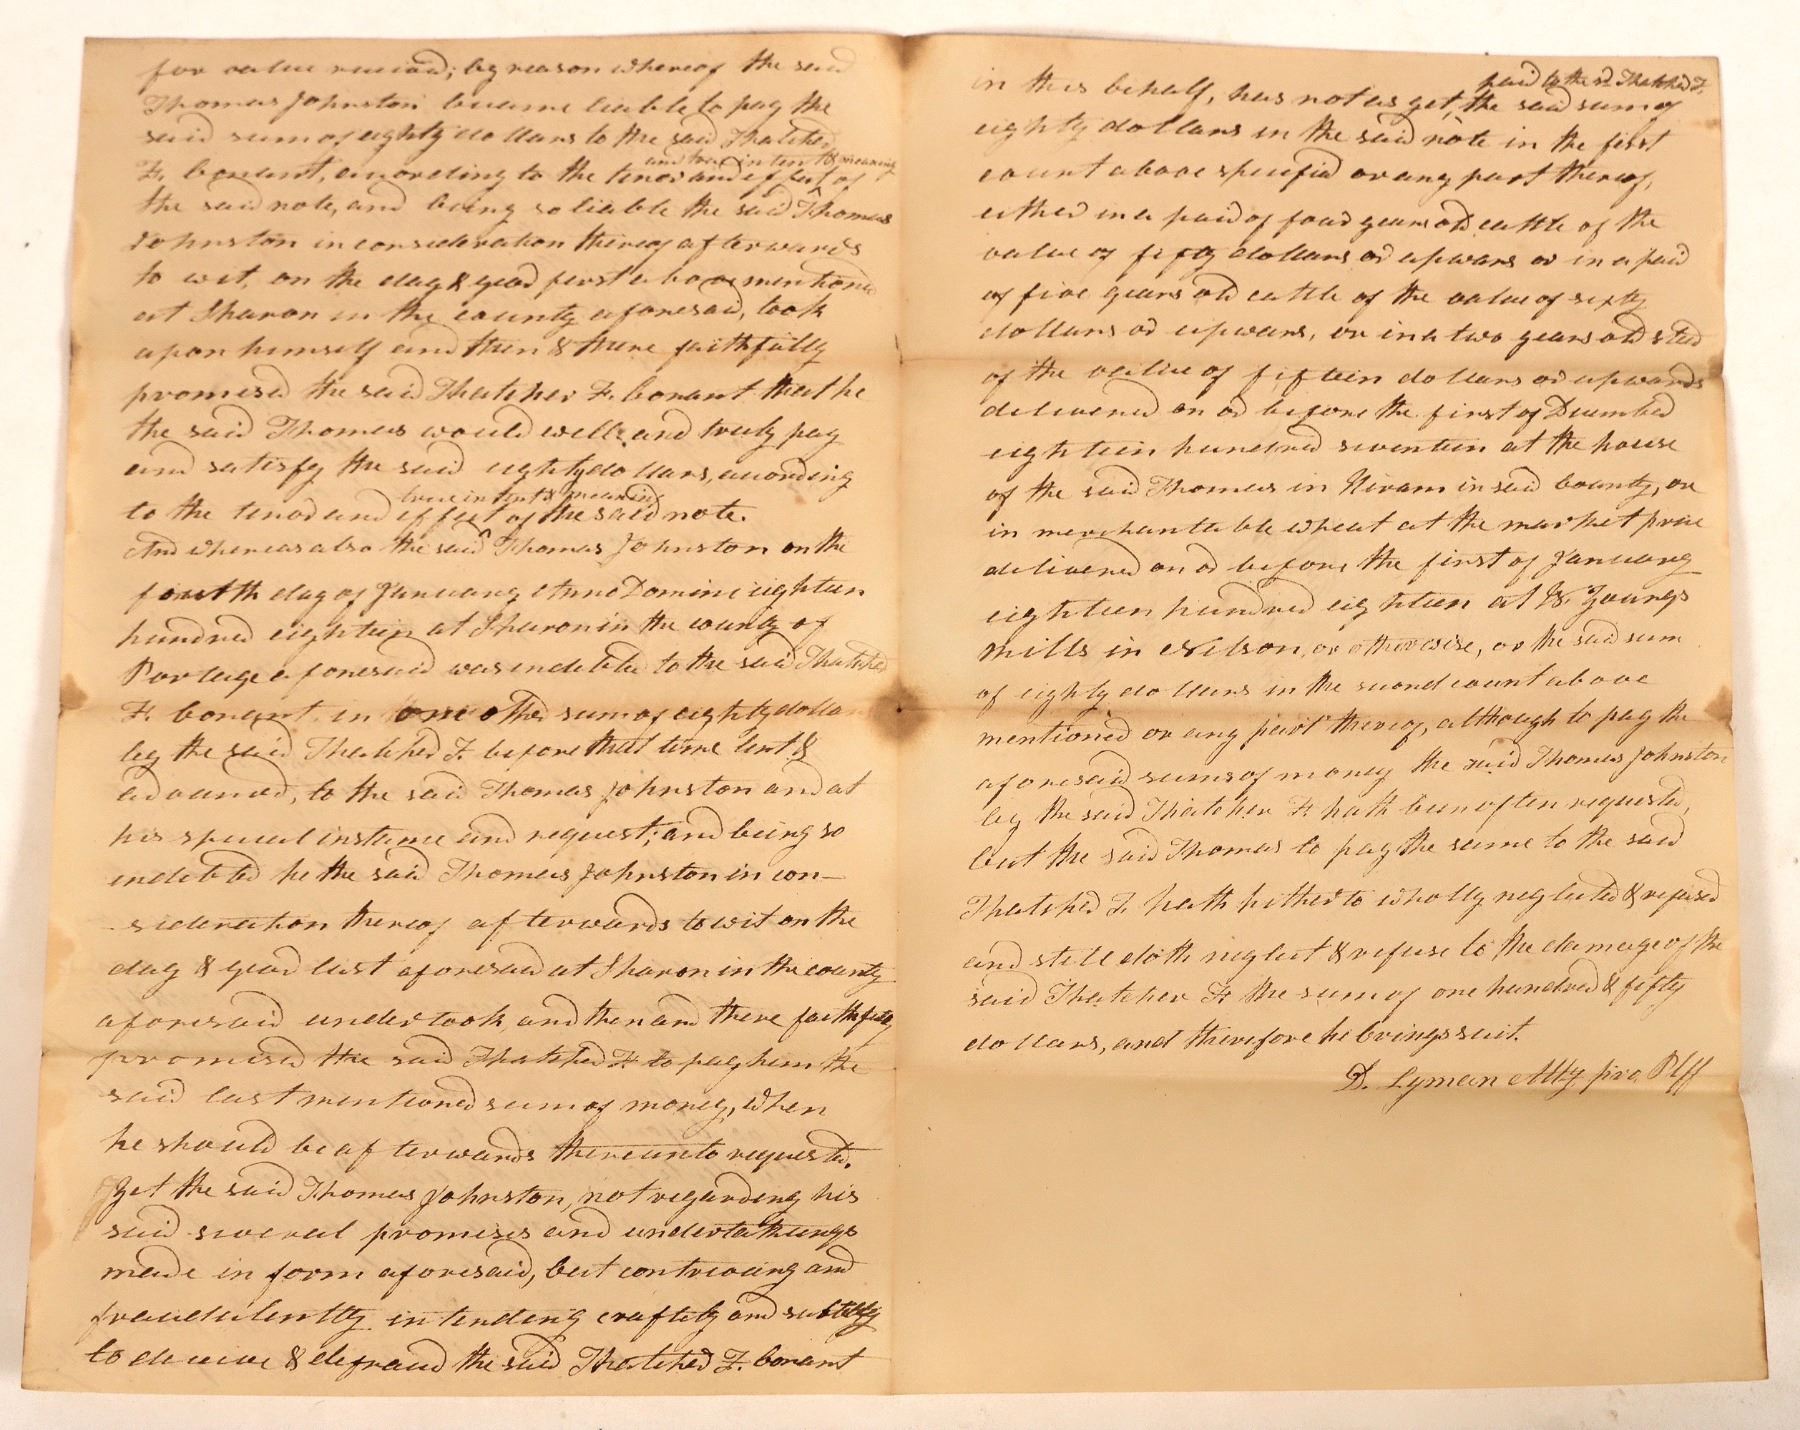 for value received; by reason whereof the said
Thomas Johnston became liable to pay the
said sum of eighty dollars to the said Thatcher
and true intent & meaning
F. Conant, according to the tenor and effect of
the said note, and being so liable the said Thomas
Johnston in consideration thereof afterwards
to wit, on the day & year first above mentioned
at Sharon in the county aforesaid, took
upon himself and then & there faithfully
promised the said Thatcher F. Conant that he
the said Thomas would well and truly pay
and satisfy the said eighty dollars, according
true intent & meaning
to the tenor and effect of the said note.
And whereas also the said Thomas Johnston on the
fourth day of January Anno Domini eighteen
hundred eighteen at Sharon in the county of
Portage aforesaid was indebted to the said Thatcher
F. Conant in one other sum of eighty dollars
by the said Thatcher F. before that time lent &
advanced, to the said Thomas Johnston and at
his special instance and request; and being so
indebted he the said Thomas Johnston in con-
sideration thereof afterwards to wit on the
day & year last aforesaid at Sharon in the county
aforesaid undertook and then and there faithfully
promised the said Thatcher F. to pay him the
said last mentioned sum of money, when
he should be afterwards thereunto requested.
Yet the said Thomas Johnston, not regarding his
said several promises and undertakings
made in form aforesaid, but contriving and
fraudulently intending craftily and subtilly
to deceive & defraud the said Thatcher F. Conant
paid to the sd Thatcher F.
in this behalf, has not as yet, the said sum of
eighty dollars in the said note in the first
count above specified or any part thereof,
either in a pair of four years old cattle of the
value of fifty dollars or upwars or in a pair
of five years old cattle of the value of sixty
dollars or upwars, or in a two years old sted
of the value of fifteen dollars or upwards
delivered on or before the first of December
eighteen hundred seventeen at the house
of the said Thomas in Hiram in said County, or
in merchantable wheat at the market price
delivered on or before the first of January
eighteen hundred eighteen at W. Youngs
Mills in Nelson, or otherwise, or the said sum
of eighty dollars in the second count above
mentioned or any part thereof, although to pay the
aforesaid sums of money the said Thomas Johnston
by the said Thatcher F. hath been often requested,
but the said Thomas to pay the same to the said
Thatcher F. hath hitherto wholly neglected & refused
and still doth neglect & refuse to the damage of the
said Thatcher F. the sum of one hundred & fifty
dollars, and therefore he brings suit.
D. Lyman Atty pro Plff